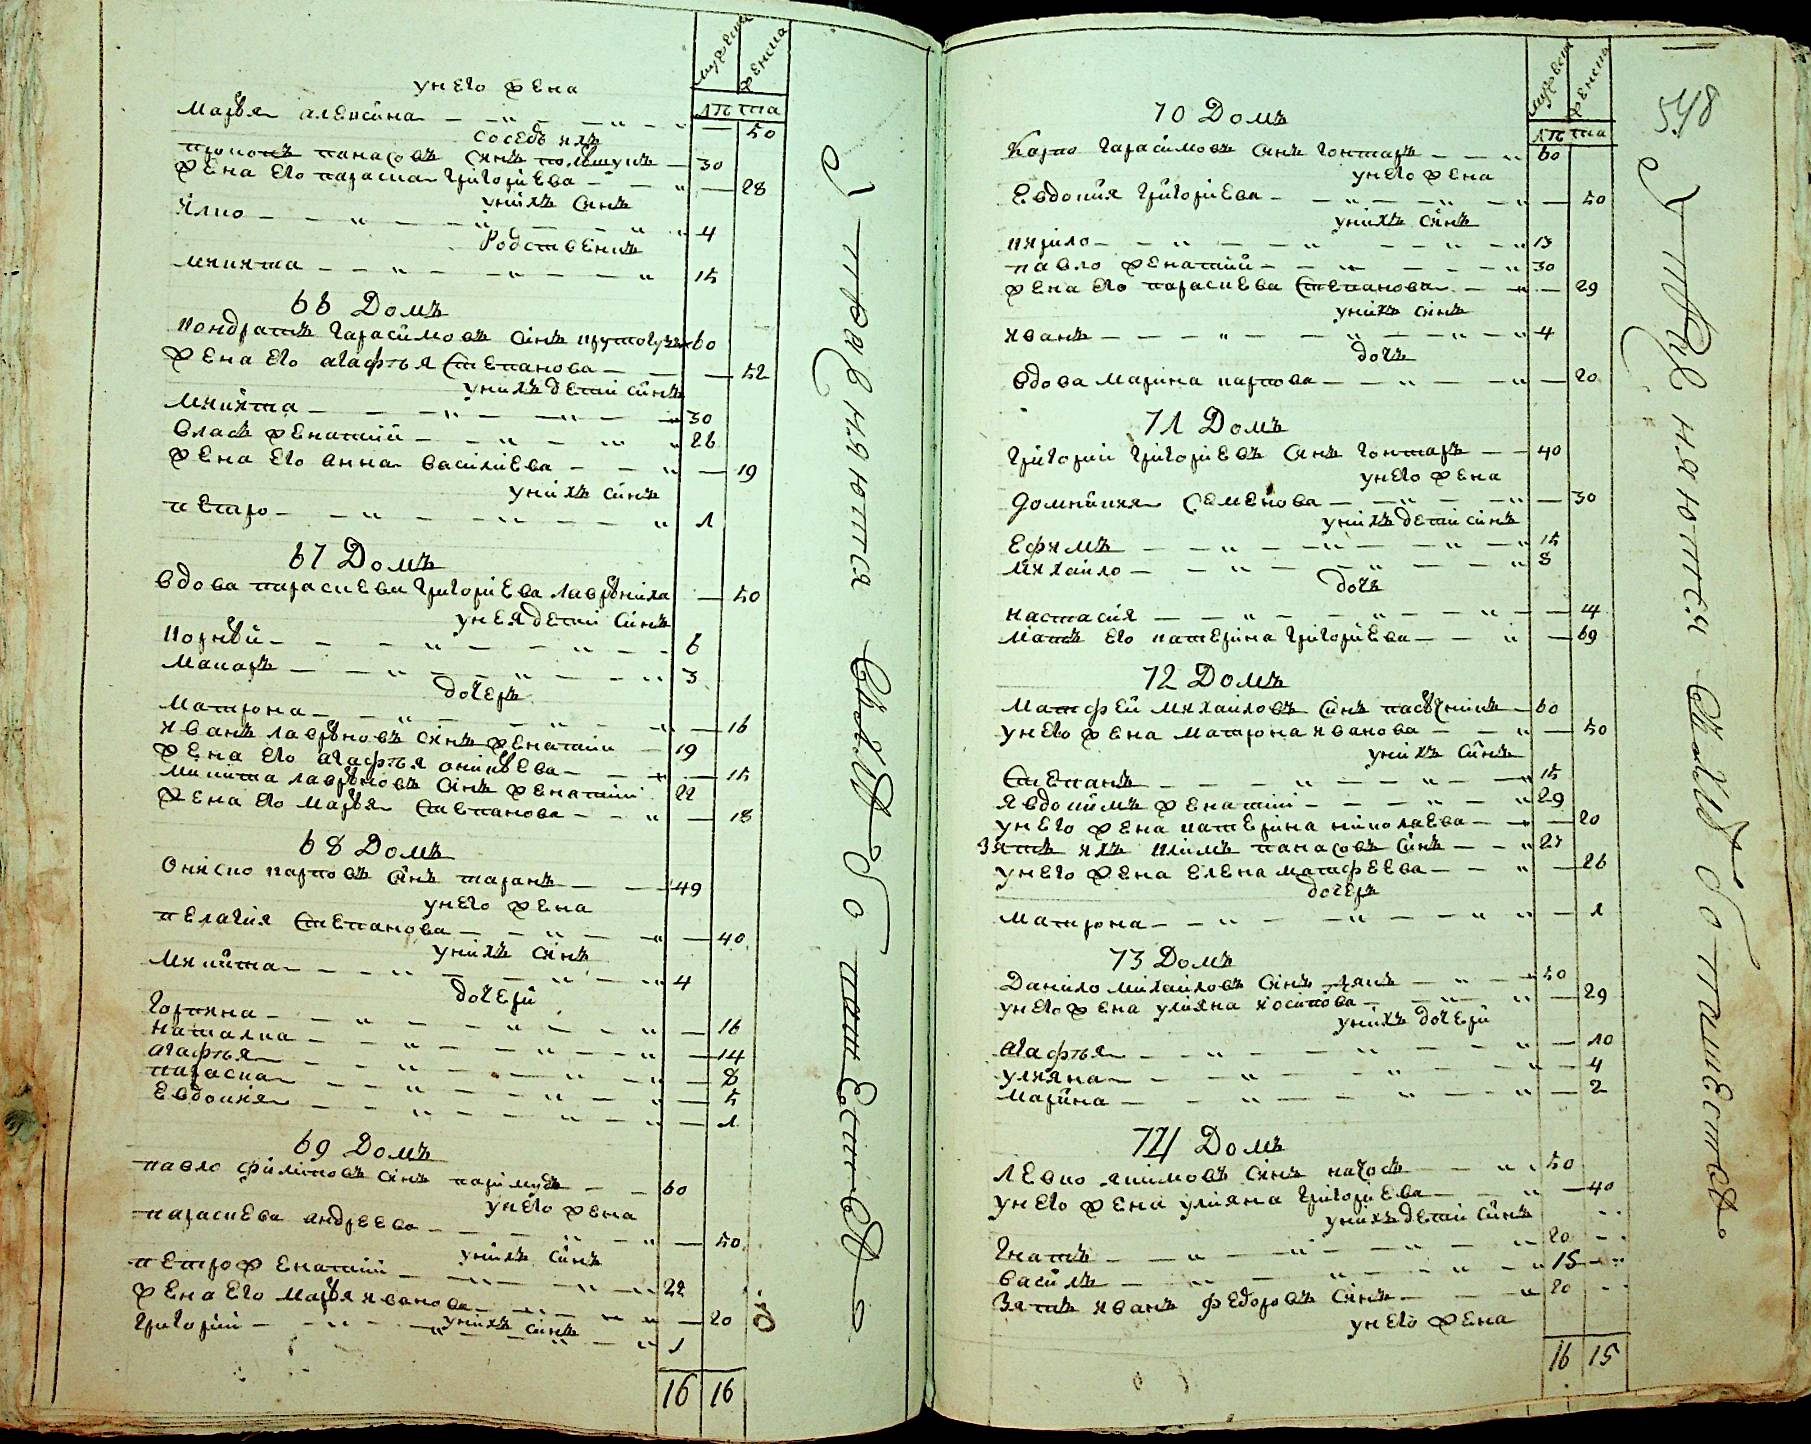 мужеска женска
лѣта
у него жена
Марѣя Алексiина 50
сосѣдъ ихъ
Прокопъ Панасовъ синъ 30
жена его Параска Григорiева 28
у нихъ синъ
Илко 4
Родственикъ
Микита 15
66 Домъ
Кондратъ Гарасимовъ синъ 60
жена его Агафтья Степанова 52
у нихъ дети синъ
Микита 30
Власъ женатий 26
жена его Анна Василиева 19
у нихъ синъ
Петро 1
67 Домъ
вдова Параскева Григорiева Лаврѣниха 50
у нея дети синъ
Корнѣй 6
Макаръ 3
дочеръ
Матрона 16
Иванъ Лаврѣновъ синъ женатий 19
жена его Агафтья Онiпѣева 15
Микита Лаврѣновъ синъ женатий 22
жена его Марѣя Степанова 18
68 Домъ
Ониско Карповъ синъ Таранъ 49
у него жена
Пелагия Степанова 40
у нихъ синъ
Микита 4
дочери
Горпина 16
Наталка 14
Агафтья 8
Параска 5
Евдокия 1
69 Домъ
Павло Филиповъ синъ 60
у него жена
Параскева Андреева 50
у нихъ синъ
Петро женатий 22
жена его Марѣя Иванова 20
у нихъ синъ
Григорий 1
16 16
У Трѣ няются
мужеска женска
лѣта
548
70 Домъ
Карпо Гарасимовъ синъ Гонтаръ 60
у него жена
Евдокия Григорiева 50
у нихъ синъ
Кирило 13
Павло женатий 30
жена его Параскева Степанова 29
у нихъ синъ
Иванъ 4
дочъ
вдова Марина Карпова 20
71 Домъ
Григорий Григорiевъ синъ Гонтаръ 40
у него жена
Домникия Семенова 30
у нихъ дети синъ
Ефимъ 15
Михайло 8
дочъ
Настасiя 4
Матъ его Катерина Григорiева 69
72 Домъ
Матфей Михайловъ синъ Пасѣчникъ 60
у него жена Матрона Иванова 50
у нихъ синъ
Степанъ 15
Явдокимъ женатий 29
у него жена Катерина Николаева 20
Зятъ ихъ Климъ Панасовъ синъ 27
у него жена Елена Матфеева 26
дочеръ
Матрона 1
73 Домъ
Данило Михайловъ синъ Ляхъ 50
у него жена Улияна Иосипова 29
у нихъ дочери
Агафтья 10
Улияна 4
Марина 2
74 Домъ
Левко Якимовъ синъ 50
у него жена Улияна Григорiева 40
у нихъ дети синъ
Гнатъ 20
Василъ 15
Зятъ Иванъ Федоровъ синъ 20
у него жена
16 15